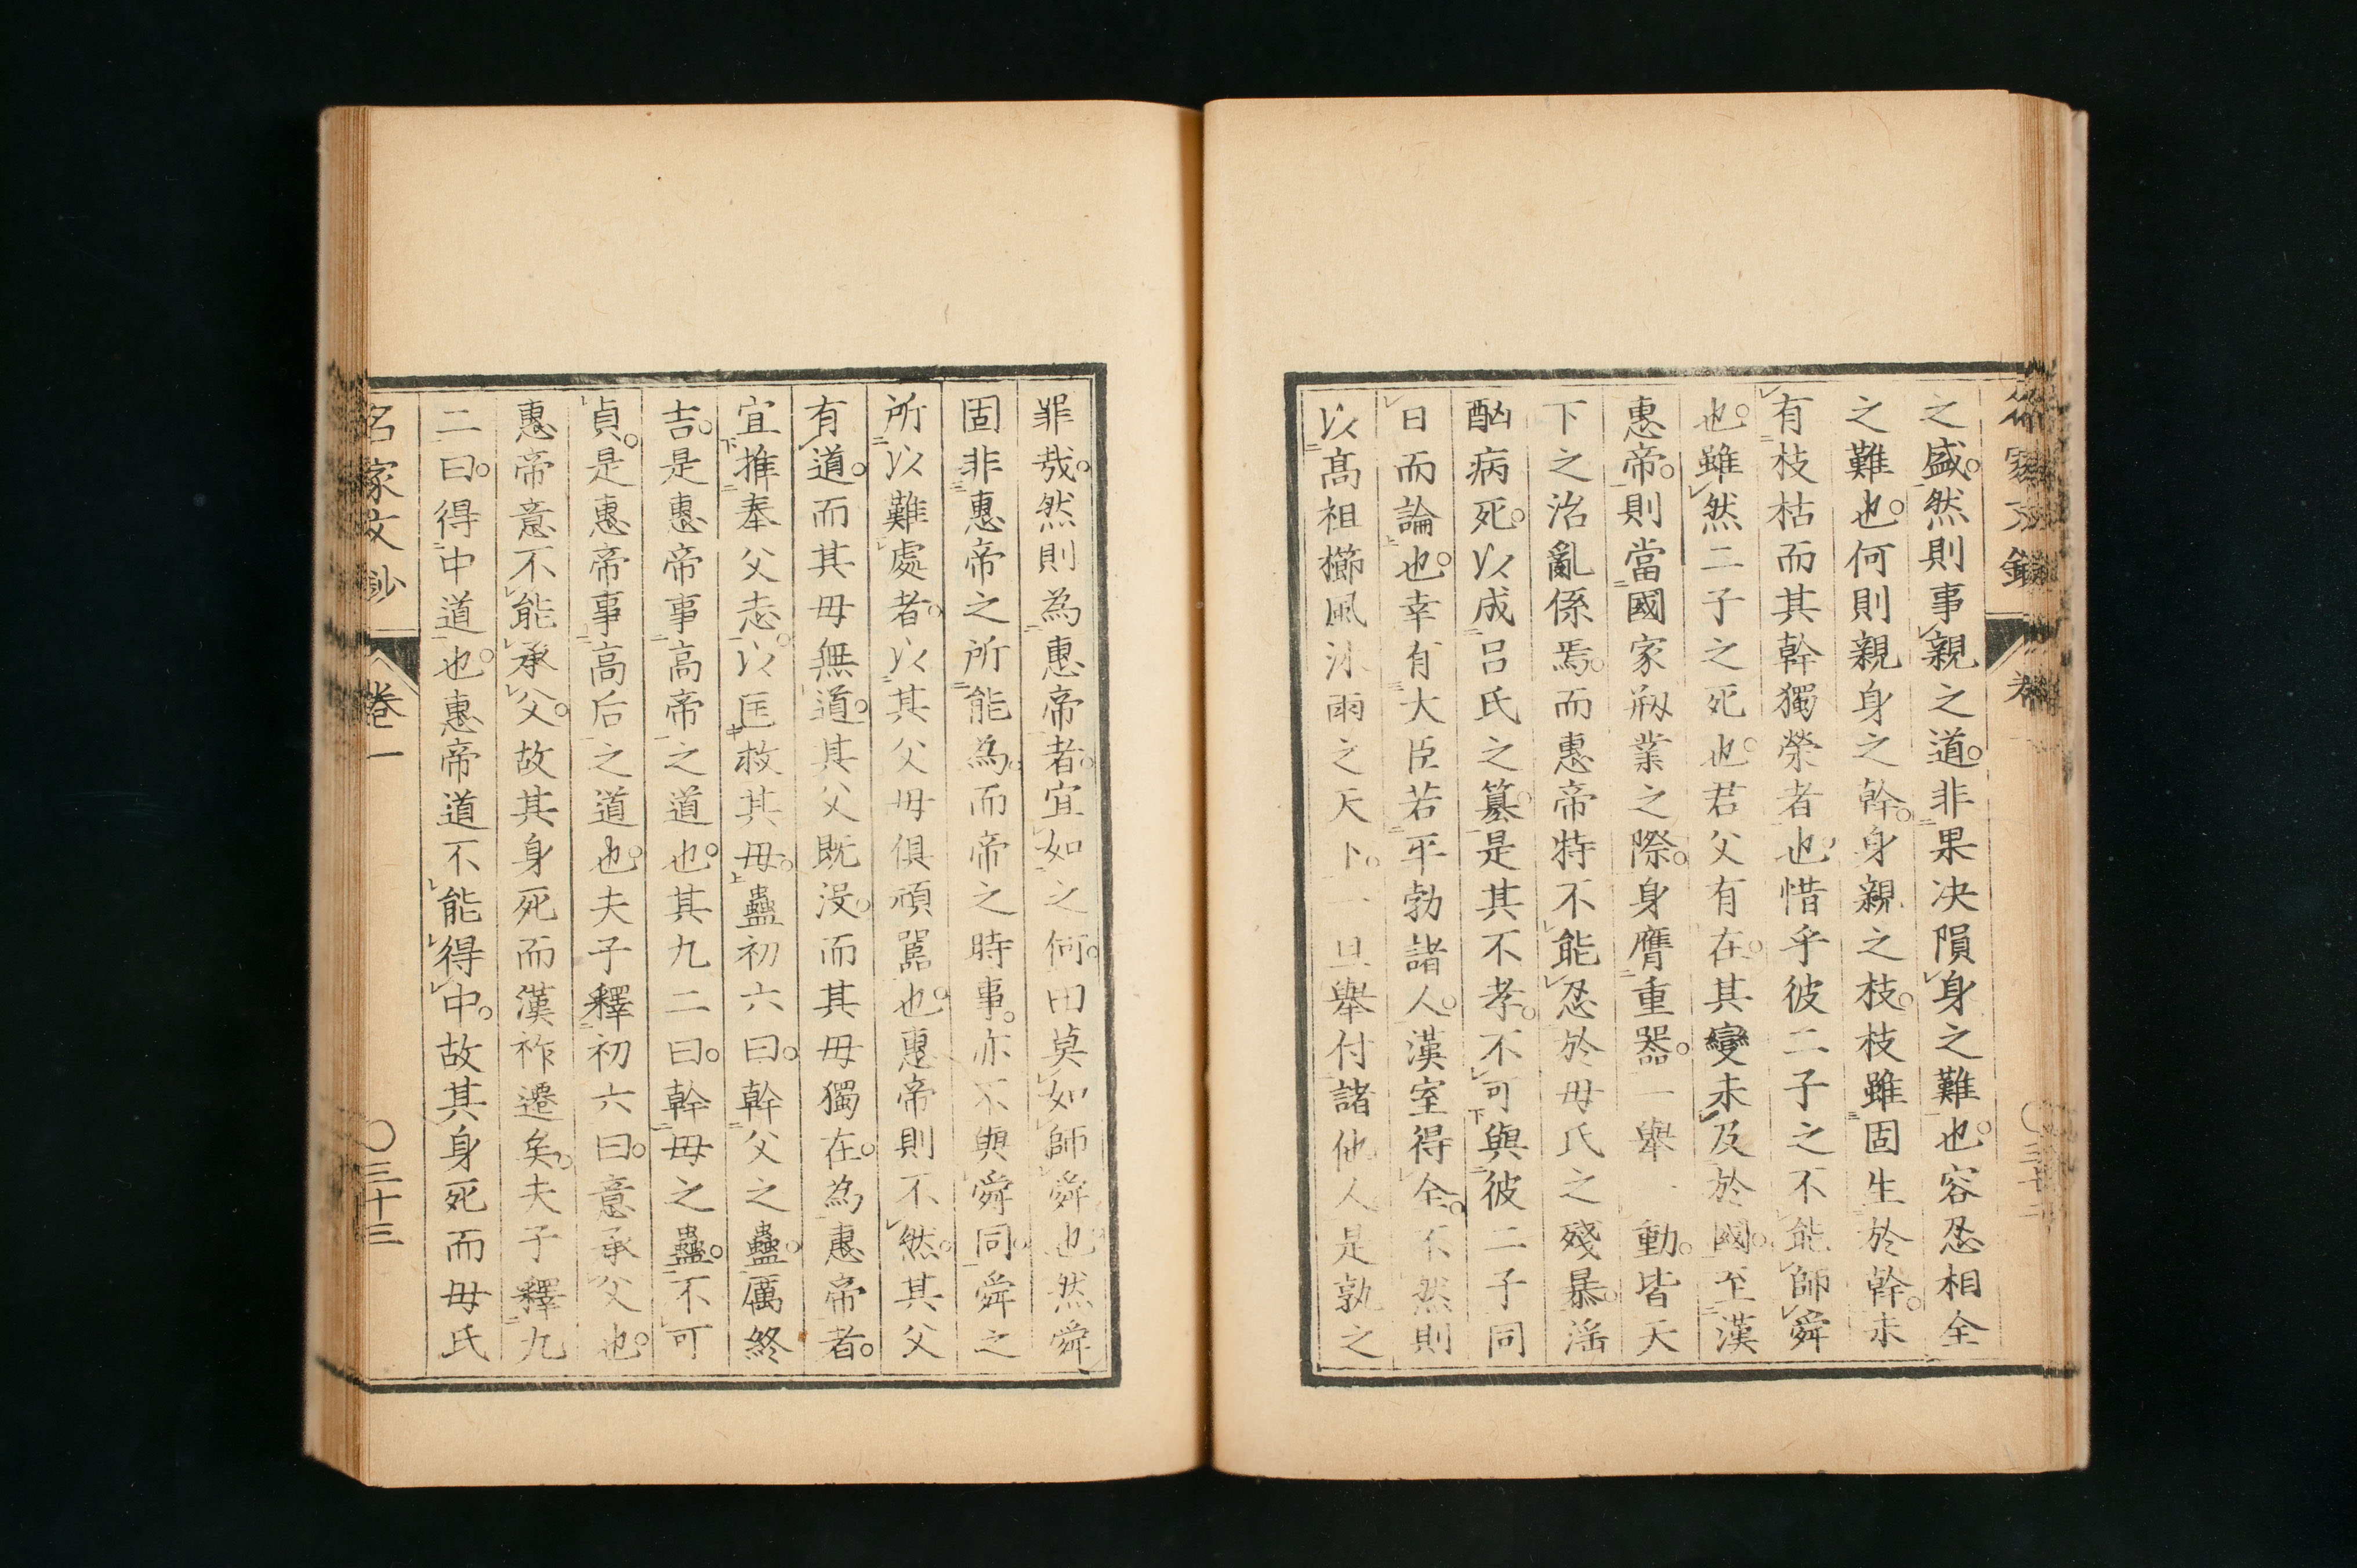 之盛。然則事親之道。非果决隕身之難也。容忍相全
之難也。何則親身之幹。身親之枝。枝雖固生於幹。未
有枝枯而其幹獨榮者也。惜乎彼二子之不能師舜
也。雖然二子之死也。君父有在。其變未及於國。至漢
惠帝。則當國家剏業之際。身膺重器。一舉一動。皆天
下之治亂係焉。而惠帝特不能忍於母氏之殘暴。滛
酗病死。以成呂氏之簒。是其不孝。不可與彼二子同
日而論也。幸有大臣若平勃諸人。漢室得全。不然則
以高祖櫛風沐雨之天下。一旦舉付諸他人是孰之
罪哉。然則為惠帝者。宜如之何。曰莫如師舜也然舜
固非惠帝之所能為。而帝之時事。亦不與舜同。舜之
所以難處者。以其父母俱頑嚚也。惠帝則不然。其父
有道。而其母無道。其父既没。而其母獨在。為惠帝者。
宜推奉父志。以匡救其母。蠱初六曰。幹父之蠱。厲終
吉。是惠帝事高帝之道也。其九二曰。幹母之蠱。不可
貞。是惠帝事高后之道也。夫子釋初六曰。意承父也。
惠帝意不能承父。故其身死而漢祚遷矣。夫子釋九
二曰。得中道也。惠帝道不能得中。故其身死而母氏
名家文鈔
卷一
〇三十三